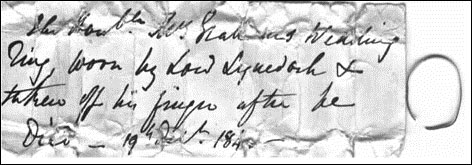 The Honble Mrs Grahams Wedding
Ring worn by Lord Lynedoch &
taken off his finger after he
Died — 19th Decr. 184